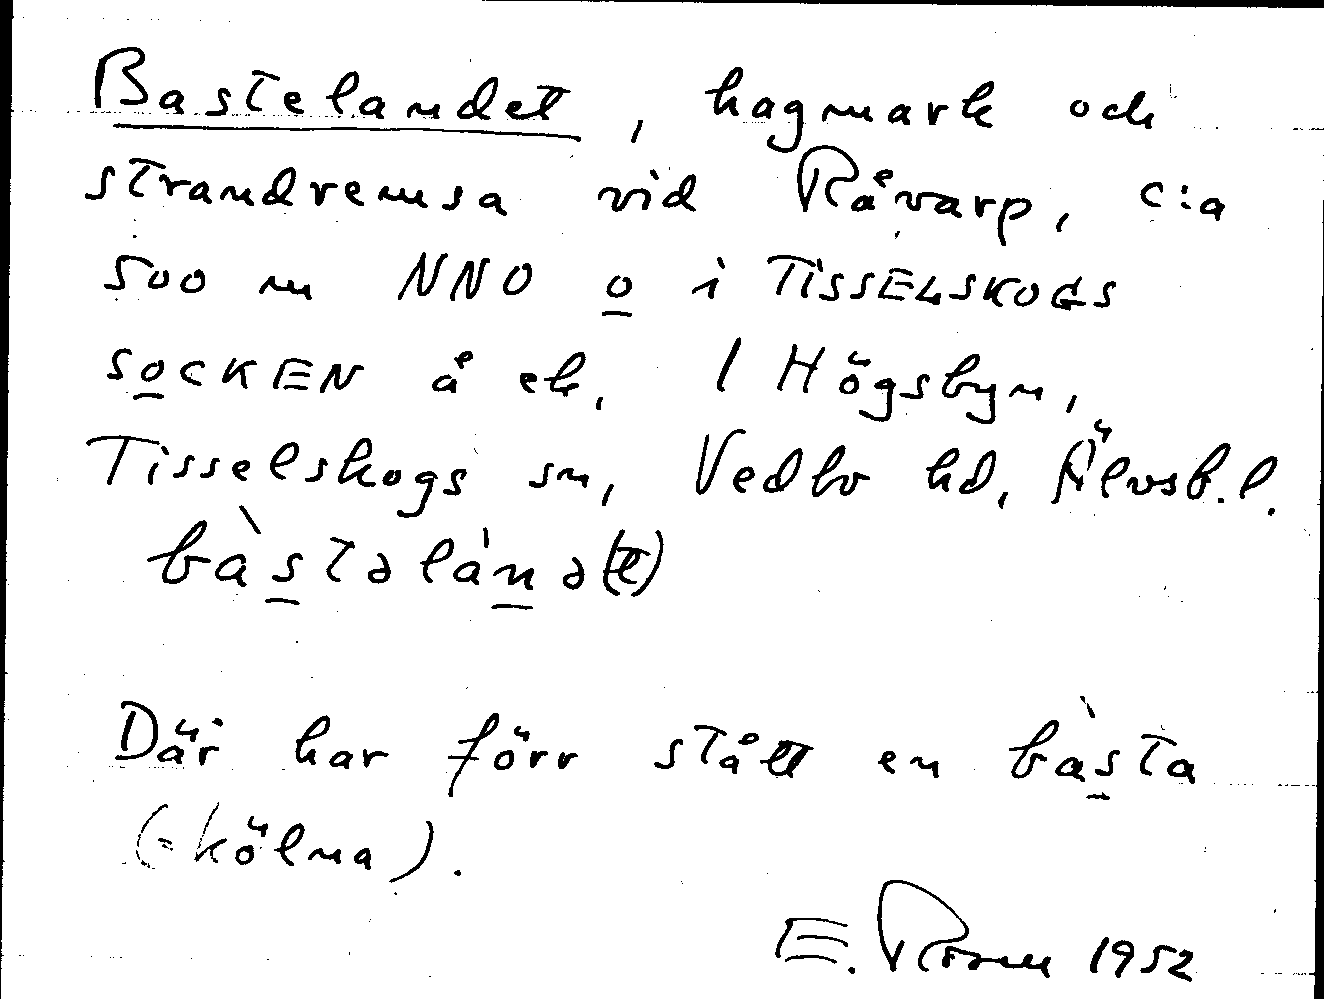 Bastelandet, hagmark och
strandremsa vid Råvarp, c:a
500 m NNO o i TISSELSKOGS
SOCKEN å ek. I Högsbyn,
Tisselskogs sn, Vedbo hd, Älvsb. l.
bàstəlánə(t)
Där har förr stått en bàsta
(= kölna).
E. 1952